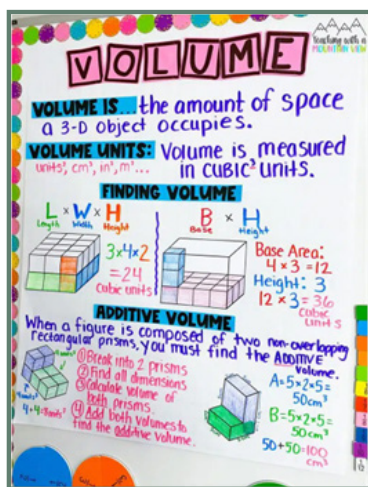 teaching with a
MOUNTAIN VIEW
VOLUME
VOLUME IS... the amount of space
a 3-D object occupies.
VOLUME UNITS: Volume is measured
units³, cm³, in³, m³... in CUBIC³ UNITS.
FINDING VOLUME
L x W x H
Length Width Height
3x4x2
=24
cubic units
B x H
Base Height
Base Area:
4 x 3 = 12
Height: 3
12 x 3 = 36
cubic
units
ADDITIVE VOLUME
When a figure is composed of two non-overlapping
rectangular prisms, you must find the ADDITIVE
volume.
① Break into 2 prisms
② Find all dimensions
③ Calculate volume of
both prisms
④ Add both volumes to
find the additive volume.
A=5x2x5=
50cm³
B=5x2x5=
50cm³
50+50=100
cm³